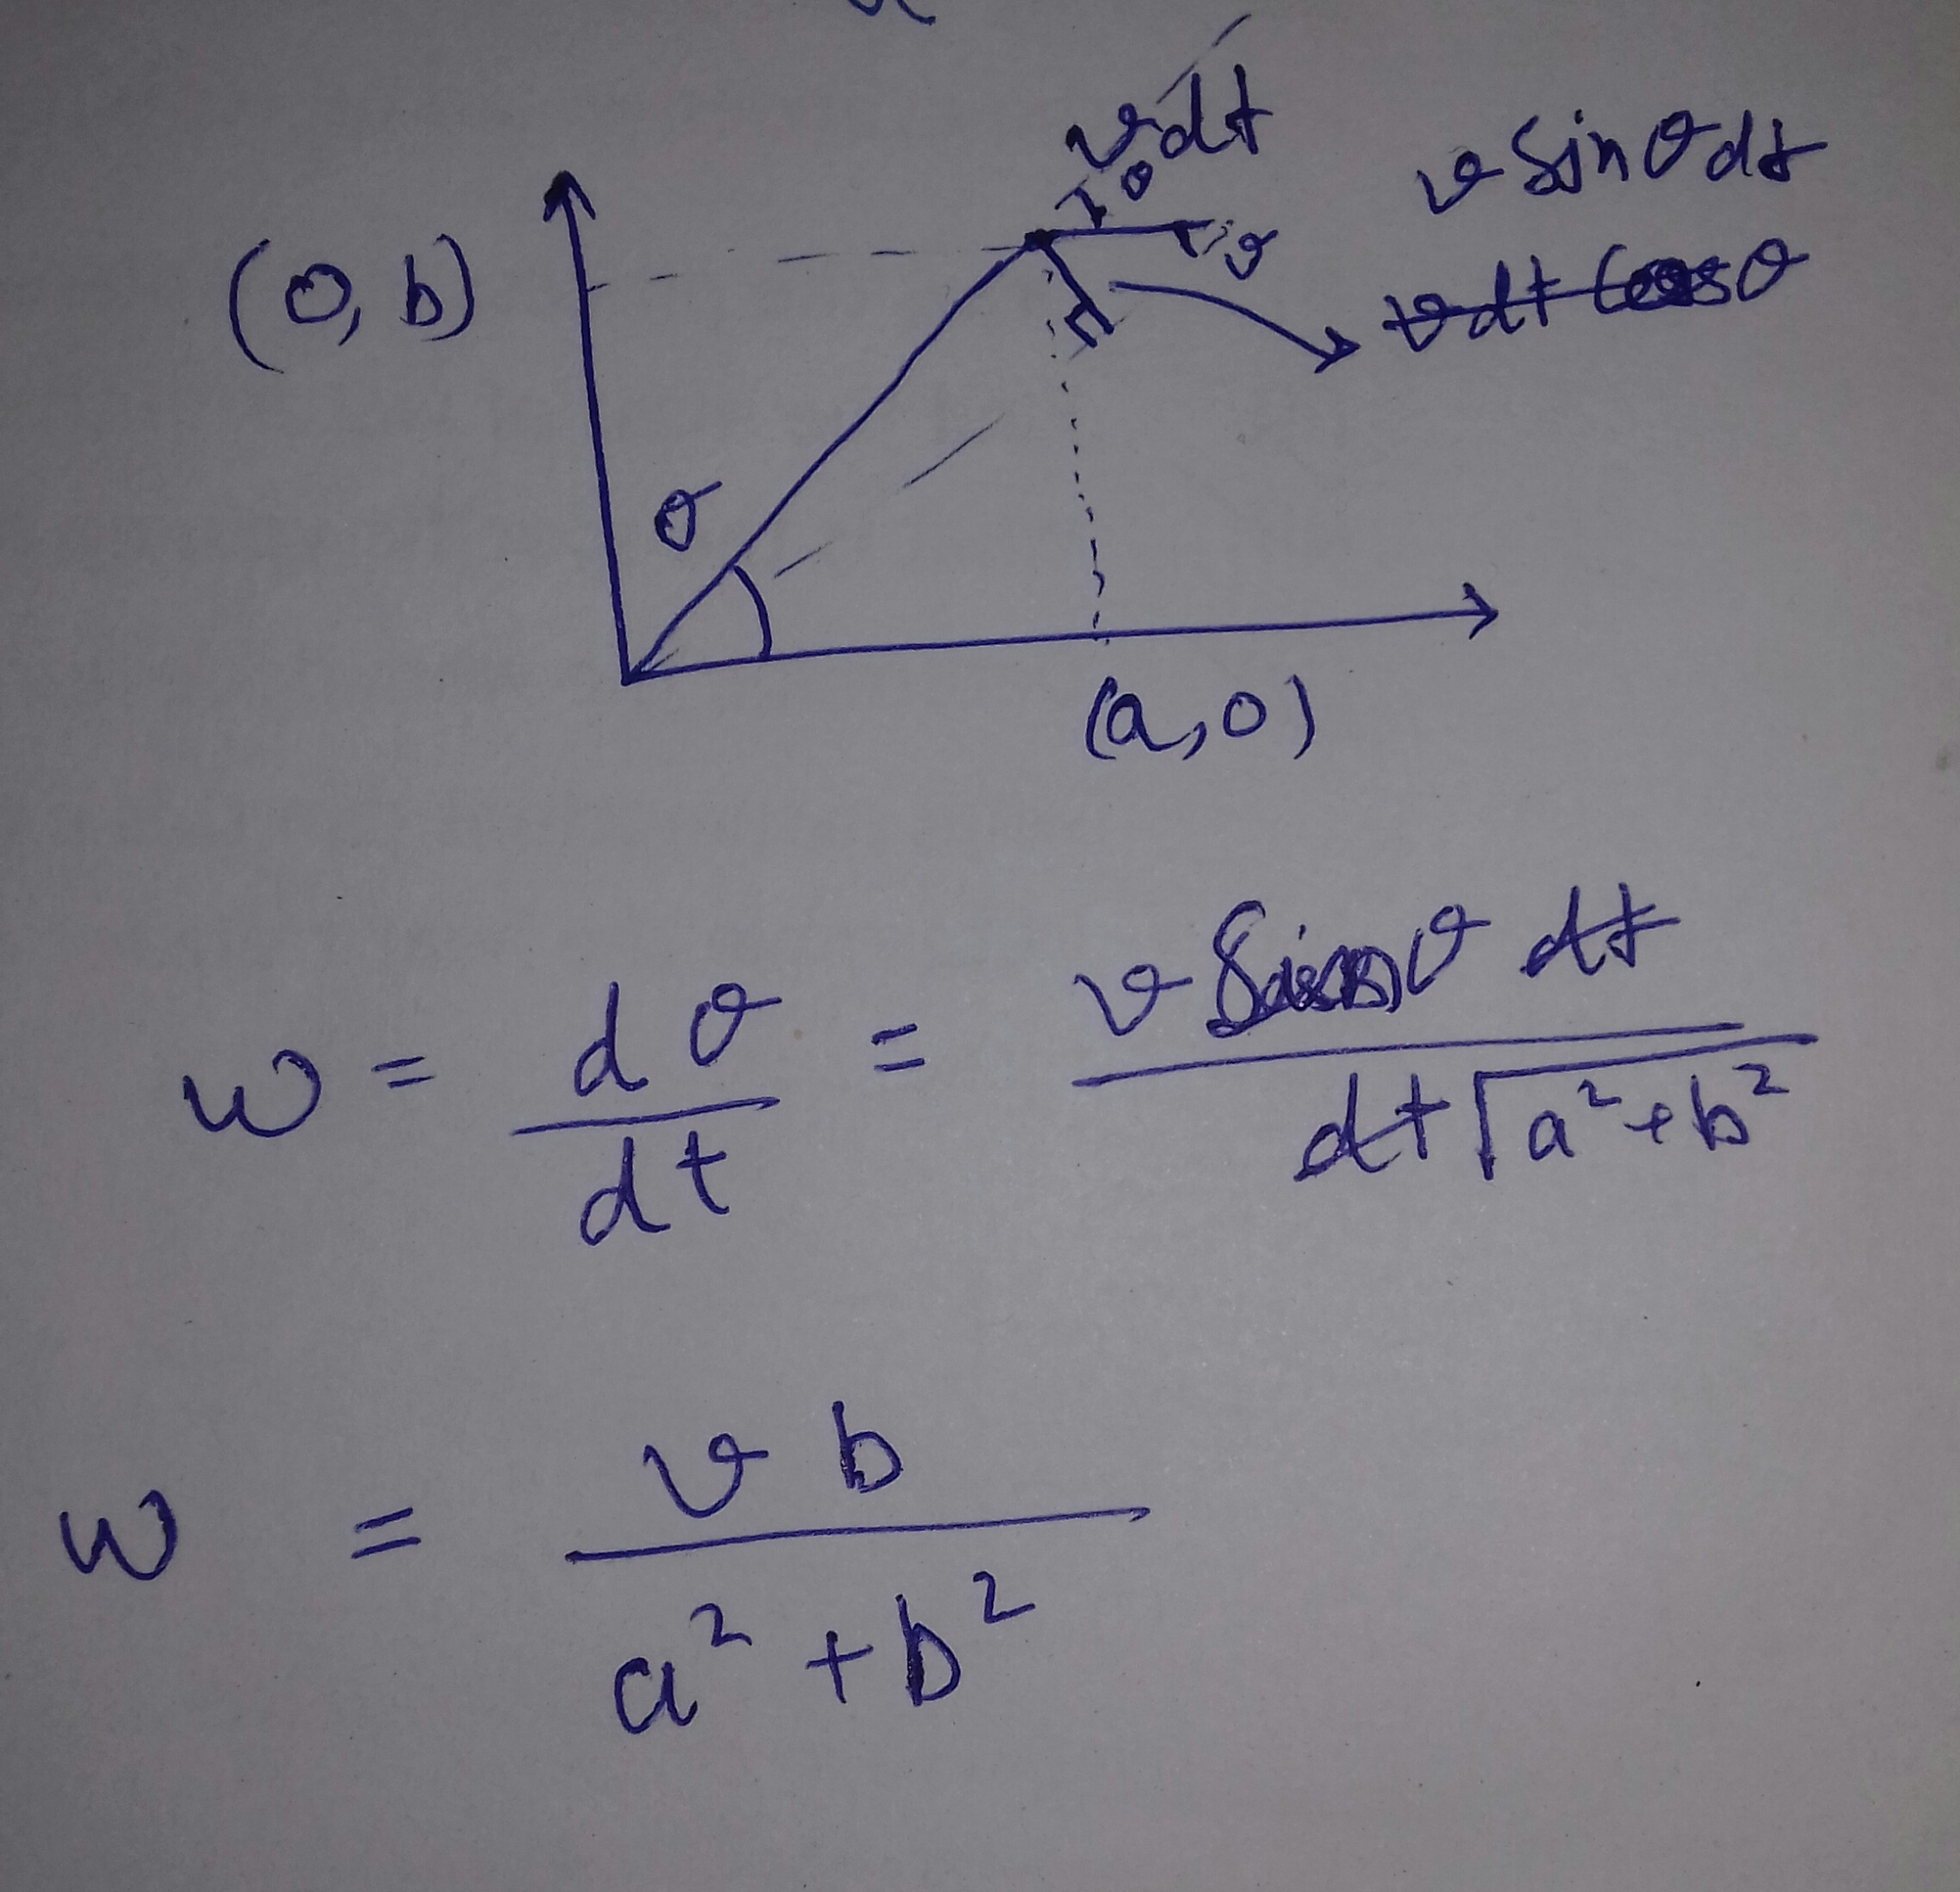 vdt
θ
v sinθdt
(0, b)
v
vdt cosθ
θ
(a, 0)
w = dθ/dt = v sinθ dt / dt√a²+b²
w = v b / a² + b²